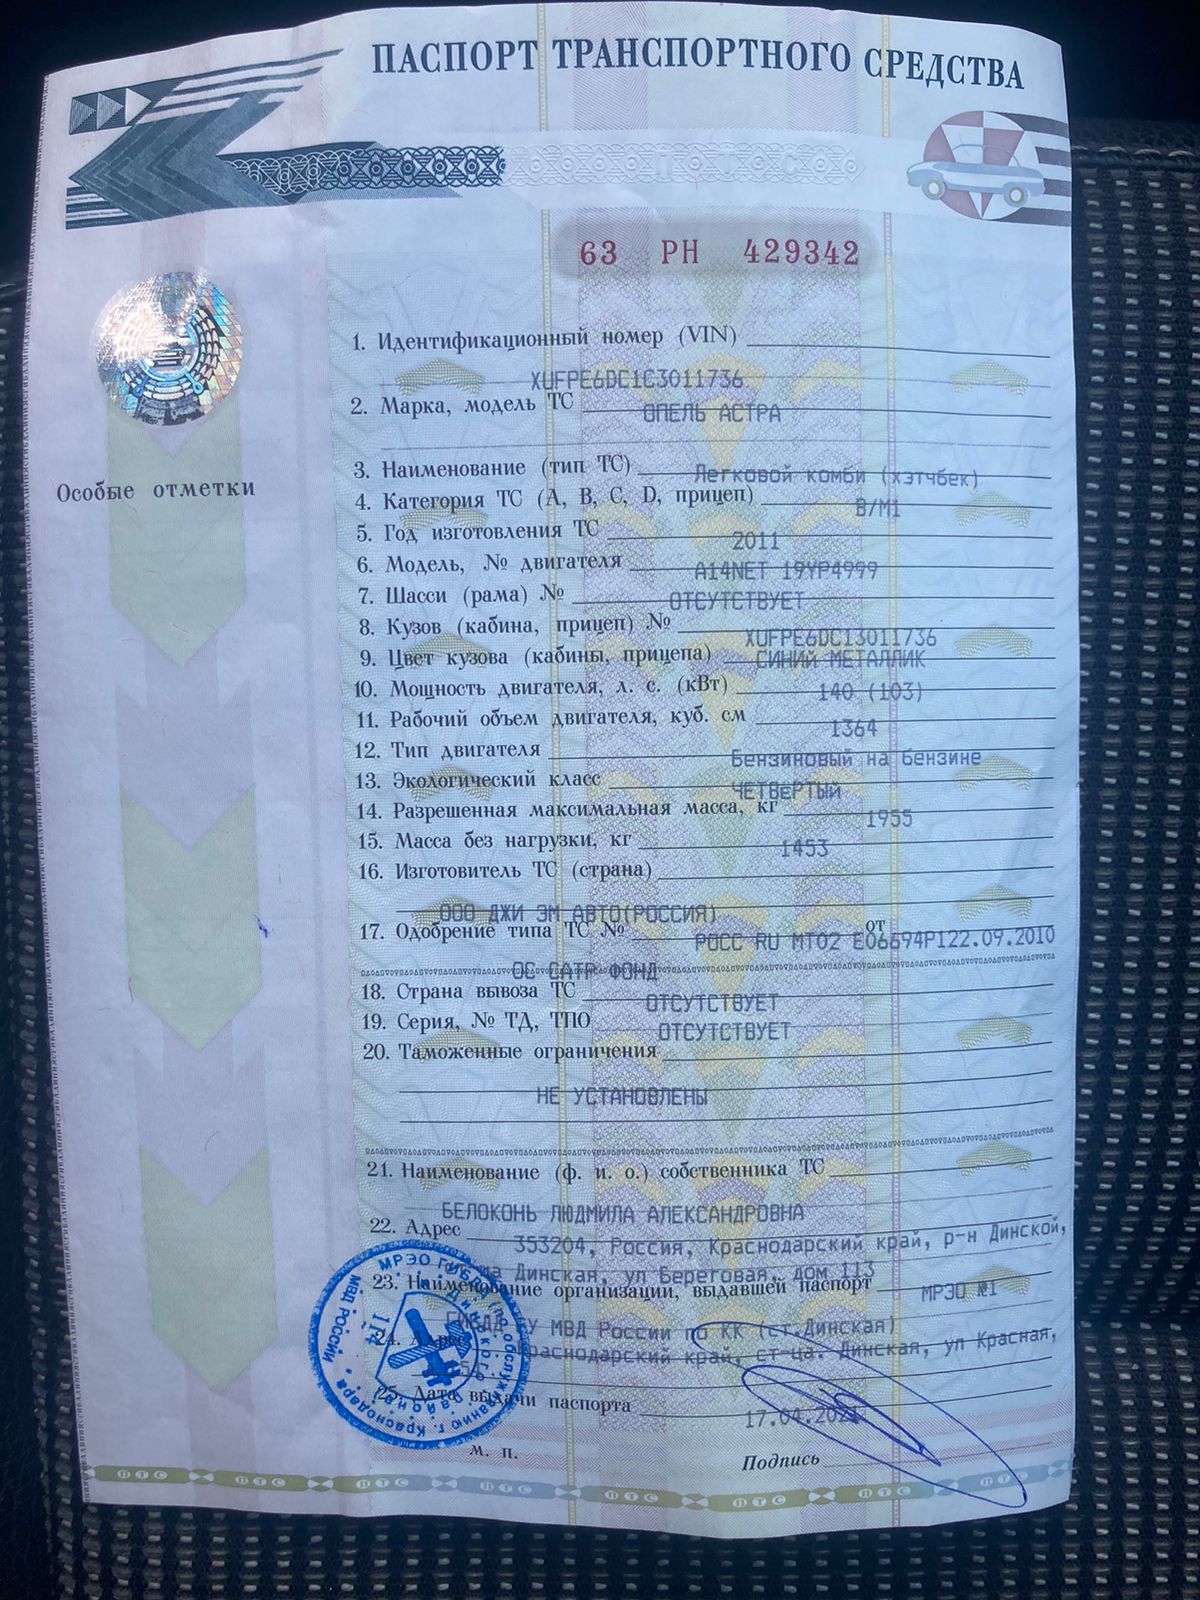 ПАСПОРТ ТРАНСПОРТНОГО СРЕДСТВА
63 РН 429342
1. Идентификационный номер (VIN)
XUFPE6DC1C3011736
2. Марка, модель ТС ОПЕЛЬ АСТРА
3. Наименование (тип ТС) Легковой комби (хэтчбек)
Особые отметки
4. Категория ТС (А, В, С, D, прицеп) В/М1
5. Год изготовления ТС 2011
6. Модель, № двигателя A14NET 19YP4999
7. Шасси (рама) № ОТСУТСТВУЕТ
8. Кузов (кабина, прицеп) № XUFPE6DC13011736
9. Цвет кузова (кабины, прицепа) СИНИЙ МЕТАЛЛИК
10. Мощность двигателя, л. с. (кВт) 140 (103)
11. Рабочий объем двигателя, куб. см 1364
12. Тип двигателя Бензиновый на бензине
13. Экологический класс ЧЕТВЕРТЫЙ
14. Разрешенная максимальная масса, кг 1955
15. Масса без нагрузки, кг 1453
16. Изготовитель ТС (страна)
ООО ДЖИ ЭМ АВТО(РОССИЯ)
17. Одобрение типа ТС № РОСС RU МТ02 Е06694Р122.09.2010 от
ОС САТР ФОНД
18. Страна вывоза ТС ОТСУТСТВУЕТ
19. Серия, № ТД, ТПО ОТСУТСТВУЕТ
20. Таможенные ограничения
НЕ УСТАНОВЛЕНЫ
21. Наименование (ф. и. о.) собственника ТС
БЕЛОКОНЬ ЛЮДМИЛА АЛЕКСАНДРОВНА
22. Адрес 353204, Россия, Краснодарский край, р-н Динской,
Динская, ул Береговая, дом 113
23. Наименование организации, выдавшей паспорт МРЭО №1
ГИБДД ГУ МВД России по КК (ст.Динская)
24. Адрес Краснодарский край, ст-ца. Динская, ул Красная,
25. Дата выдачи паспорта 17.04.2021
м. п.
Подпись
ПТС ПТС ПТС ПТС ПТС ПТС ПТС ПТС